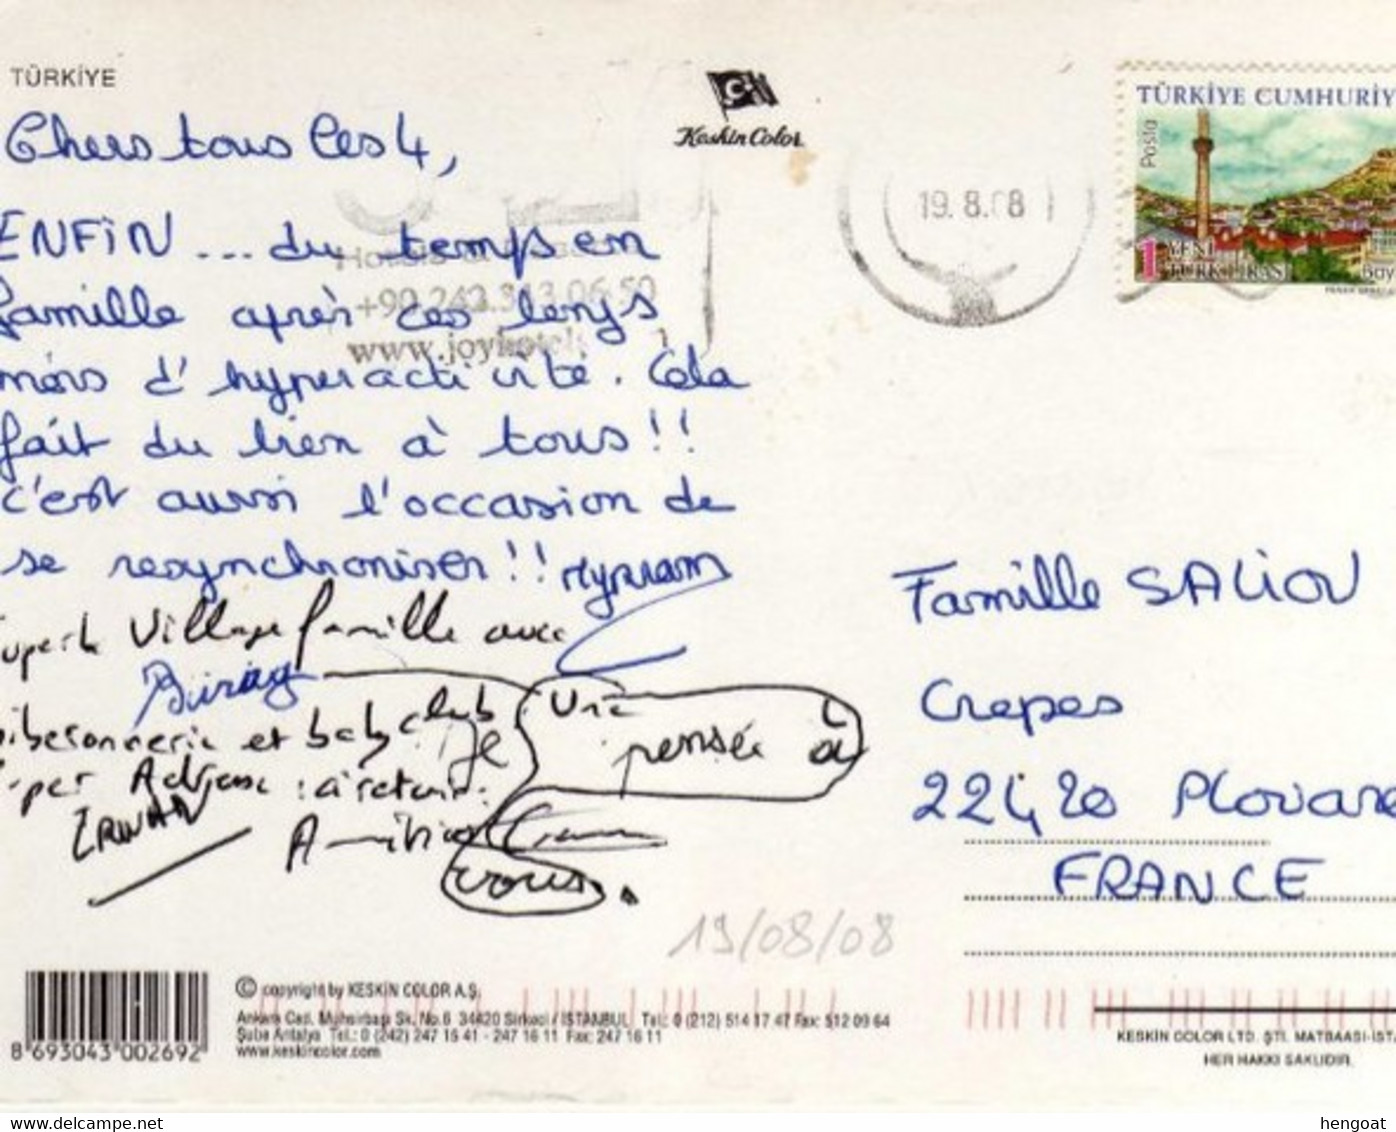 TÜRKİYE
Chers tous les 4,
ENFIN ... du temps en
famille après ces longs
mois d'hyperactivité. Cela
fait du bien à tous!!
c'est aussi l'occasion de
se resynchroniser!! Myriam
Village famille avec
et baby club
Je
Une
pensée à
vous.
ERWAN
Keskin Color
19.8.08
TÜRKİYE CUMHURİY
Posta
1 YENİ
TÜRK LİRASI
Boy
+90 242.313 06 50
www.joyhotel
Famille SALIOU
Crepes
22420 Plouare
FRANCE
19/08/08
8 693043 002692
© copyright by KESKİN COLOR A.Ş.
Ankara Cad. Mühsirbaşı Sk. No.6 34420 Sirkeci / İSTANBUL Tel: 0 (212) 514 17 47 Fax: 512 09 64
Şube Antalya Tel.: 0 (242) 247 15 41 - 247 16 11 Fax: 247 16 11
www.keskincolor.com
KESKİN COLOR LTD. ŞTİ. MATBAASI-İST
HER HAKKI SAKLIDIR.
delcampe.net
hengoat